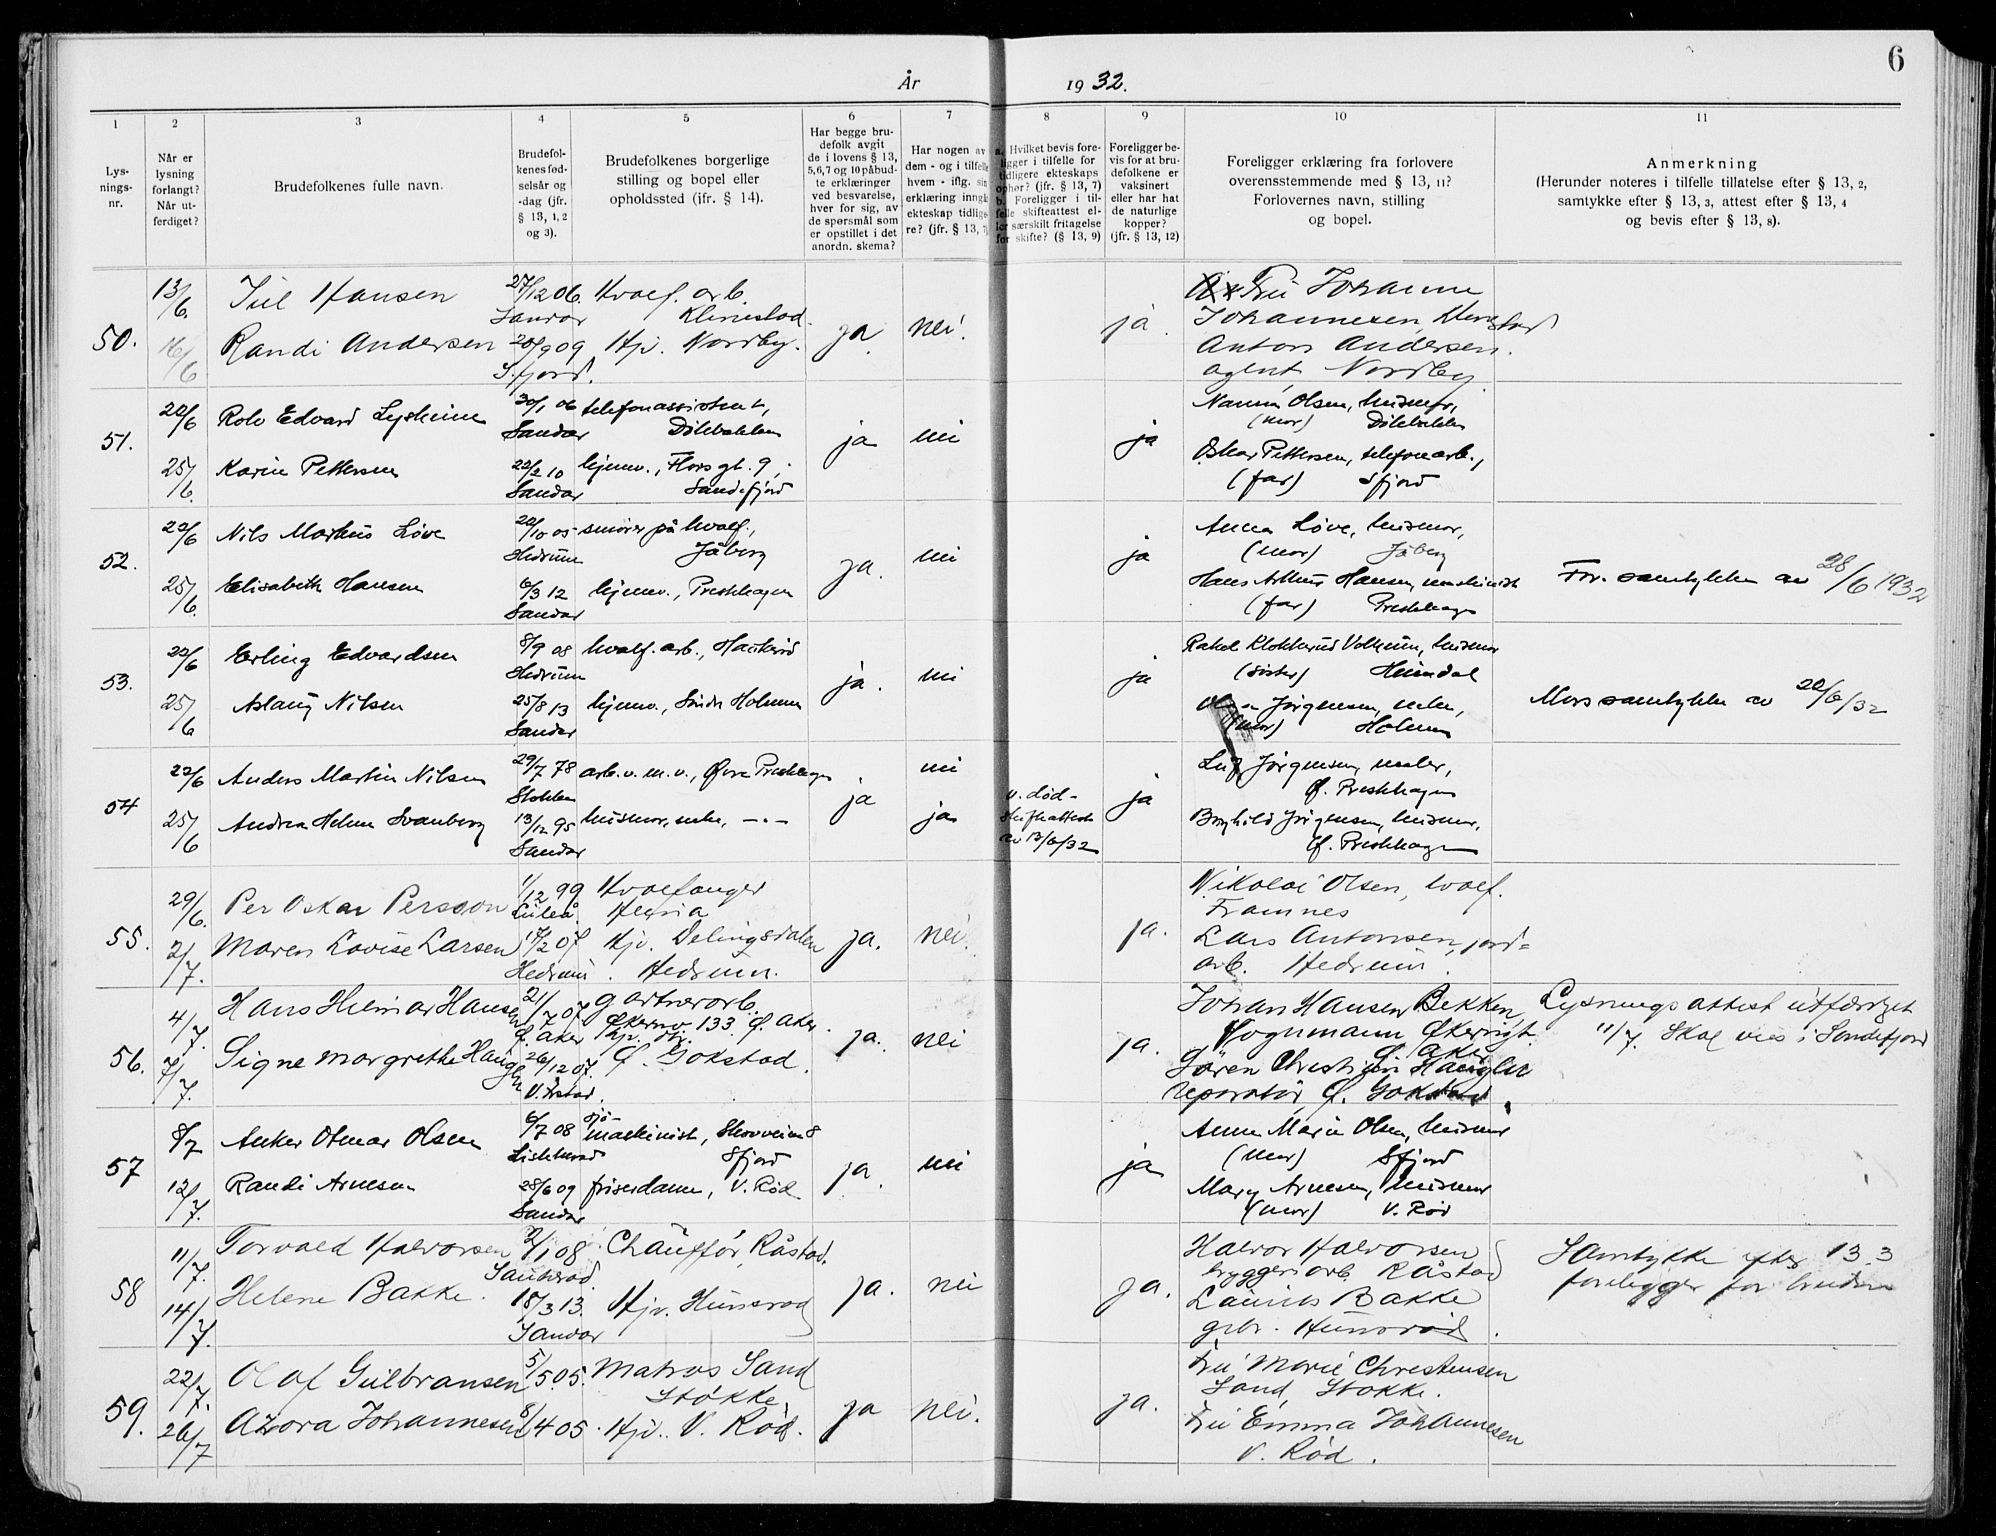 6
År 1932.
1 2 3 4 5 6 7 8 9 10 11
Lys-
nings-
nr.
Når er
lysning
forlangt?
Når ut-
ferdiget?
Brudefolkenes fulle navn.
Brudefol-
kenes fød-
selsår og
-dag (jfr.
§ 13, 1, 2
og 3).
Brudefolkenes borgerlige
stilling og bopel eller
opholdssted (jfr. § 14).
Har begge bru-
defolk avgit
de i lovens § 13,
5,6,7 og 10 påbud-
te erklæringer
ved besvarelse,
hver for sig, av
de spørsmål som
er opstillet i det
anordn. skema?
Har nogen av
dem - og i tilfelle
hvem - iflg. sin
erklæring inngå
ekteskap tidlige-
re? (jfr. § 13, 7)
a. Hvilket bevis fore-
ligger i tilfelle for
tidligere ekteskaps
ophør? (jfr. § 13, 7)
b. Foreligger i til-
felle skifteattest el-
ler særskilt fritagelse
for skifte? (§ 13, 9)
Foreligger be-
vis for at bru-
defolkene er
vaksinert
eller har hat
de naturlige
kopper?
(jfr. § 13, 12)
Foreligger erklæring fra forlovere
overensstemmende med § 13, 11?
Forlovernes navn, stilling
og bopel.
Anmerkning
(Herunder noteres i tilfelle tillatelse efter § 13, 2,
samtykke efter § 13, 3, attest efter § 13, 4
og bevis efter § 13, 8).
50.
13/6.
16/6
Juel Hansen
Randi Andersen
27/12 06.
Sandar
20/9 09
S.fjord.
Hvalf. arb.
Klinestad.
Hjv. Nordby.
ja
nei.
ja.
Fru Johanne
Johannesen, Klinestad
Anton Andersen.
agent Nordby
51.
22/6
25/6
Rolv Edvard Lysheim
Karin Pettersen
30/1 06
Sandar
22/2 10
Sandar
telefonassistent,
Dølebakken
hjemv., Flors gt. 9,
Sandefjord
ja
nei
ja
Nanna Olsen, husmor,
(mor) Dølebakken
Oskar Pettersen, telefonarb.,
(far) Sfjord
52.
22/6
25/6
Nils Markus Løve
Elisabeth Hansen
22/10 05
Hedrum
6/3 12
Sandar
smører på hvalf.,
Jåberg
hjemv., Prestehagen
ja.
nei
ja
Anna Løve, husmor,
(mor) Jåberg
Hans Arthur Hansen, maskinist
(far) Prestehagen
For. samtykke av 28/6 1932
53.
22/6
25/6
Erling Edvardsen
Aslaug Nilsen
8/9 08
Hedrum
25/8 13
Sandar
hvalf. arb., Haukerød
hjemv., Søndre Holmen
ja.
nei
ja
Rakel Klokkerud Volheim, husmor
(søster) Heimdal
Jørgensen, maler,
(mor) Holmen
Mors samtykke av 20/6/32
54
22/6
25/6
Anders Martin Nilsen
Andrea Helene Svanberg
29/7 78
Stokke
13/12 95
Sandar
arb. v. m. v., Øvre Prestehagen
husmor, enke, -"-
ja
nei
ja
v. død-
skifteattest
av 13/6/32
ja
Jørgensen, maler,
Ø. Prestehagen
Borghild Jørgensen, husmor,
Ø. Prestehagen
55.
29/6.
2/7.
Per Oskar Persson
Maren Lovise Larsen
1/12 99
Luleå.
17/2 07
Hedrum
Hvalfanger
Hjv. Delingsdalen
Hedrum.
ja.
nei.
ja.
Nikolai Olsen, hvalf.
Framnes
Lars Antonsen, jord-
arb. Hedrum.
56.
4/7.
7/7.
Hans Helmar Hansen
Signe Margrethe Haugen
21/7 07
Ø. Aker
26/12 07.
gartnerarb.
Økernv. 133 Ø. Aker.
Ø. Gokstad.
ja.
nei
ja.
Johan Hansen Bekken
Vognmann
Ø. Aker
Søren Christian Haugen
reparatør, Ø. Gokstad.
Lysningsattest utfærdiget
11/7. Skal vies i Sandefjord
57
8/7
12/7.
Anker Otmar Olsen
Randi Arnesen
6/7 08
28/6 09
Sandar
sjø-
maskinist, Skovveien 8
Sfjord
friserdame, V. Rød
ja.
nei
ja
Anna Marie Olsen, husmor
(mor) Sfjord
Mary Arnesen, husmor
(mor) V. Rød
58
11/7.
14/7.
Torvald Halvorsen
Helene Bakke.
2/1 08
Sauherad.
18/3 13.
Sandar
Chauffør, Råstad.
Hjv. Hunsrød
ja.
nei
ja.
Halvor Halvorsen
bryggeriarb. Råstad
Laurits Bakke
grbr. Hunsrød.
Samtykke efter 13.3
foreligger for bruden
59.
22/7.
26/7
Olaf Gulbransen
Azora Johannesen
5/5 05.
8/4 05.
Matros Sand
Stokke
Hjv. V. Rød.
ja
nei.
ja.
Fru Marie Christensen
Sand, Stokke.
Fru Emma Johannesen
V. Rød.